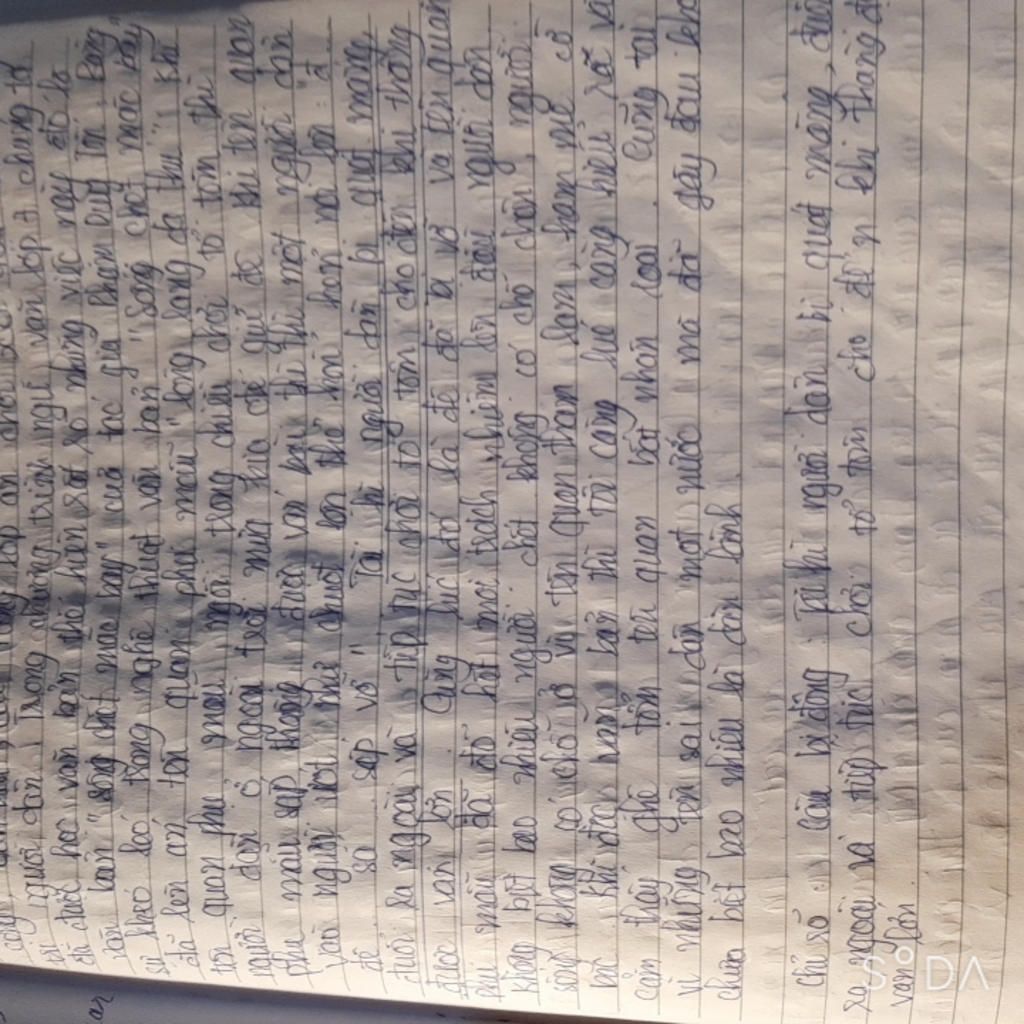 người dân. Trong chương trình ngữ văn lớp 7 chúng ta
đã được học văn bản thể hiện rất rõ những việc này đó là
văn bản "Sống chết mặc bay" của tác giả Phạm Duy Tốn. Bằng
sự khéo léo trong nghệ thuật văn bản "Sống chết mặc bay"
đã lên án tên quan phụ mẫu "lòng lang dạ thú". Khi
tên quan phụ mẫu ngồi trong chiếu chơi tổ tôm thì
người dân ở ngoài trời mưa kia để giữ đê khi tên quan
phụ mẫu sắp thắng được ván bài thì thì một người dân
vào người ướt như chuột lột thở hổn hển nói lớn: "
đê sắp vỡ" Tài khi người dân bị quát mắng
đuổi ra ngoài và tiếp tục chơi tổ tôm cho đến khi thắng
được ván lớn Cũng lúc đó là đê đã bị vỡ và tên quan
phụ mẫu đã đổ hết mọi trách nhiệm lên đầu người dân
không biết bao nhiêu người chết không có chỗ chôn, người
sống không có chỗ ở vì tên quan tham lam ham mê cờ
bạc Khi đọc văn bản thì tôi càng lúc càng hiểu rõ và
cảm thấy ghê tởm tên quan bất nhân loại. Cũng tại
vì những tên sai dân mọt nước mà đã gây đau khổ
chưa biết bao nhiêu là dân lành
Chỉ rõ câu bị động: Tài khi người dân bị quát mắng, đuổi
ra ngoài và tiếp tục chơi tổ tôm cho đến khi thắng được
ván lớn
SODA